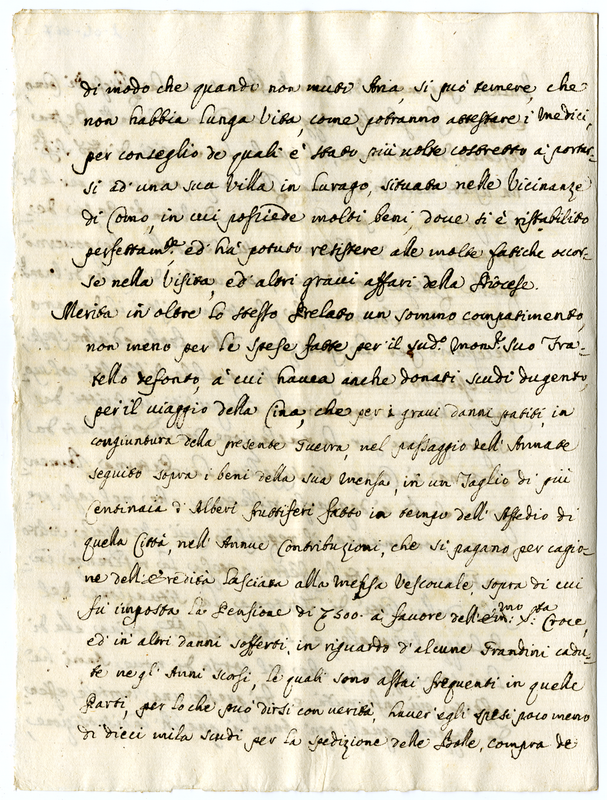 di modo che quando non muti Aria, si può temere, che
non habbia lunga Vita, come potranno attestare i Medici,
per conseglio de quali è stato più volte costretto à portar-
si ad una sua Villa in Lurago, situata nelle Vicinanze
di Como, in cui possiede molti beni, dove si è ristabilito
perfettam.te ed hà potuto resistere alle molte fatiche occor-
se nella Visita, ed altri gravi affari della Diocese.
Merita in oltre lo stesso Prelato un sommo compatimento,
non meno per le spese fatte per il sud.o Mons.r suo Fra-
tello defonto, à cui havea anche donati scudi dugento,
per il viaggio della Cina, che per i gravi danni patiti, in
congiuntura della presente Guerra, nel passaggio dell'Armate
seguito sopra i beni della sua Mensa, in un Taglio di più
Centinaia d'Alberi fruttiferi fatto in tempo dell'Assedio di
quella Città, nell'Annue Contribuzioni, che si pagano per cagio-
ne dell'Eredità lasciata alla Mensa Vescovale, sopra di cui
fù imposta la Pensione di 7500 à favore dell'Em.mo S.ta Croce,
ed in altri danni sofferti, in riguardo d'alcune Grandini cadu-
te negl'Anni scorsi, le quali sono assai frequenti in quelle
Parti, per lo che può dirsi con verità, haver egli spesi poco meno
di dieci mila scudi per la spedizione delle Bolle, compra de